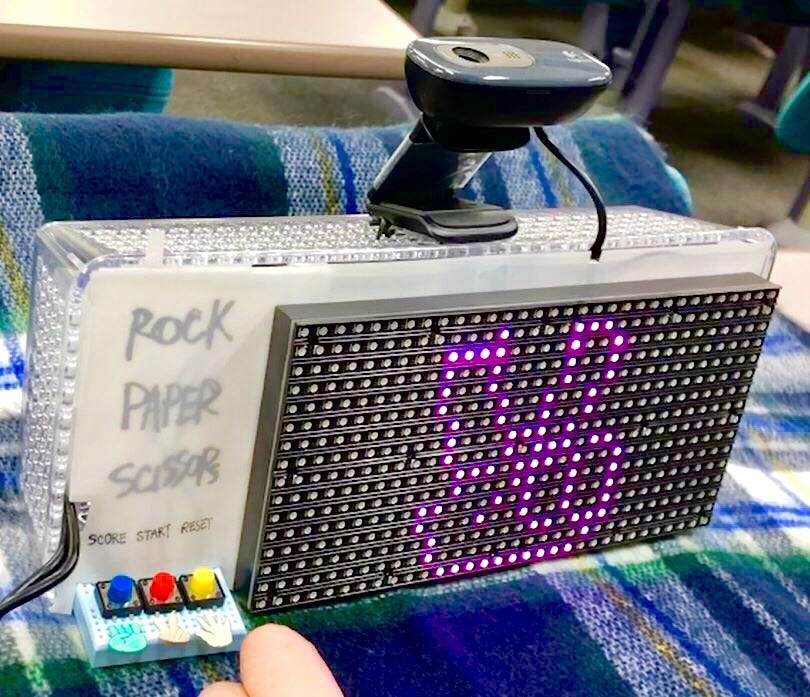 ROCK
PAPER
SCISSORS
SCORE START RESET